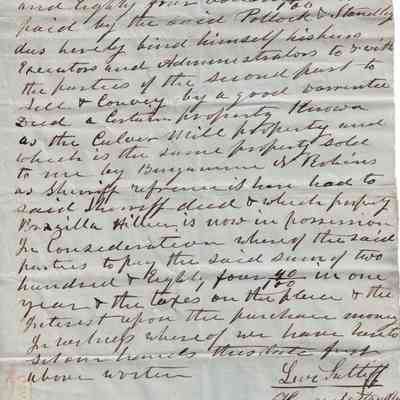 and Eighty four
paid by the said Pollock & Standly
dus herely bind himself his heirs
Executors and Administrators to & with
the parties of the second part to
Sell & Convey by a good warrantee
Deed a Certain property Known
as the Culver Mill property and
which is the same property sold
to me by Benjamin N Robins
as Sherriff refrence is here had to
said Sherriff deed & which property
Brazilla Hiller is now in possession
In Consideration where of the said
parties to pay the said sum of two
hundred & Eighty four 40/100 in one
year & the taxes on the place & the
Interest upon the purchase money
In witness where of we have here to
Set our hands this date first
above writen
Levi Sutliff